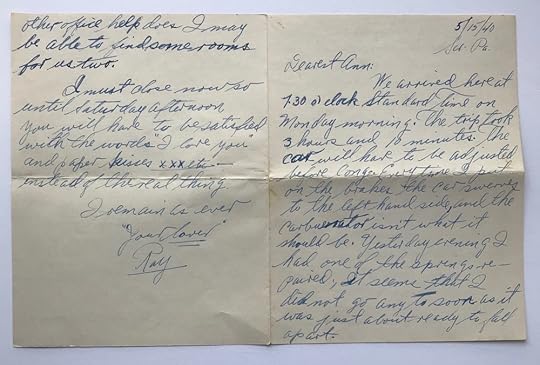 5/15/40
Scr. Pa.
Dearest Ann:
We arrived here at
7:30 o'clock Standard time on
Monday morning. The trip took
3 hours and 10 minutes. The
car will have to be adjusted
before long. Everytime I put
on the brakes the car swerves
to the left hand side and the
carburator isn't what it
should be. Yesterday evening I
had one of the springs re-
paired; It seems that I
did not go any to soon as it
was just about ready to fall
apart.
other office help does I may
be able to find some rooms
for us two.
I must close now so
until Saturday afternoon
you will have to be satisfied
with the words I love you
and paper kisses xxx etc. —
instead of the real thing
I remain as ever
"Your lover"
Ray